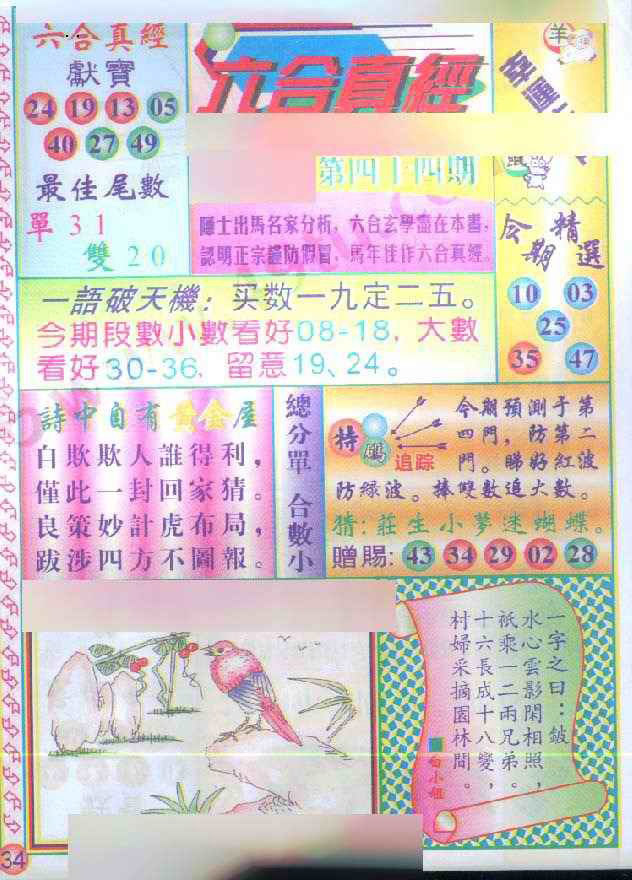 六合真經
獻寶
24 19 13 05
40 27 49
最佳尾數
單 31
雙 20
六合真經
第四十四期
隱士出馬名家分析,六合玄學盡在本書,
認明正宗謹防假冒,馬年佳作六合真經。
羊
今期精選
10 03
25
35 47
一語破天機:买数一九定二五。
今期段數小數看好08-18,大數
看好30-36,留意19、24。
詩中自有黃金屋
自欺欺人誰得利,
僅此一封回家猜。
良策妙計虎布局,
跋涉四方不圖報。
總分單 合數小
特碼
追踪
今期預測于第
四門,防第二
門。睇好紅波
防綠波。捧雙數追大數。
猜:莊生小夢迷蝴蝶。
贈賜:43 34 29 02 28
一字之曰:皴
水心雲影閑相照,
祇乘一二兩兄弟。
十六長成十八變,
村婦采摘園林間。
白小姐
34